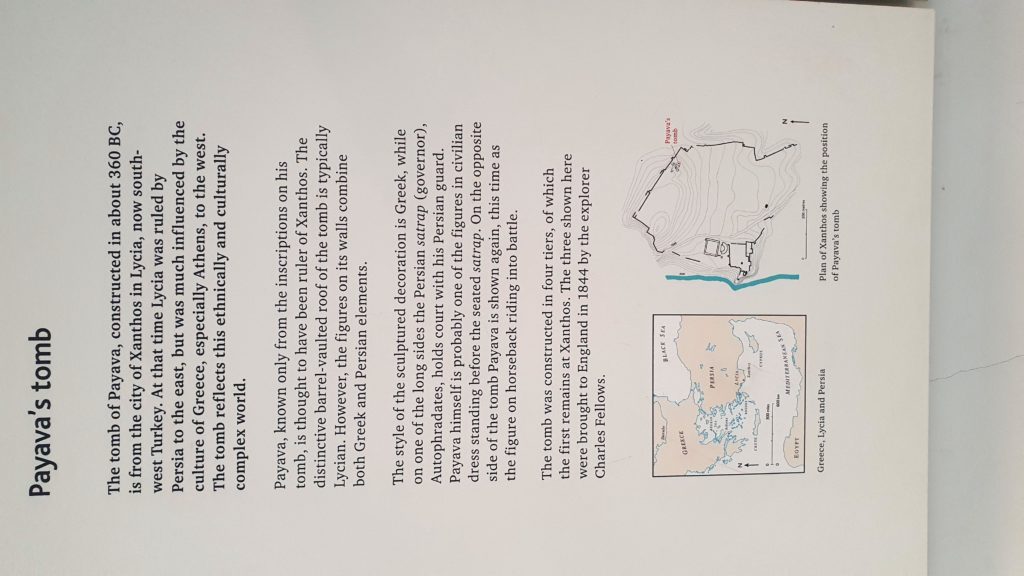 Payava's tomb
The tomb of Payava, constructed in about 360 BC,
is from the city of Xanthos in Lycia, now south-
west Turkey. At that time Lycia was ruled by
Persia to the east, but was much influenced by the
culture of Greece, especially Athens, to the west.
The tomb reflects this ethnically and culturally
complex world.
Payava, known only from the inscriptions on his
tomb, is thought to have been ruler of Xanthos. The
distinctive barrel-vaulted roof of the tomb is typically
Lycian. However, the figures on its walls combine
both Greek and Persian elements.
The style of the sculptured decoration is Greek, while
on one of the long sides the Persian satrap (governor),
Autophradates, holds court with his Persian guard.
Payava himself is probably one of the figures in civilian
dress standing before the seated satrap. On the opposite
side of the tomb Payava is shown again, this time as
the figure on horseback riding into battle.
The tomb was constructed in four tiers, of which
the first remains at Xanthos. The three shown here
were brought to England in 1844 by the explorer
Charles Fellows.
BLACK SEA
GREECE
PERSIA
LYCIA
CYPRUS
MEDITERRANEAN SEA
EGYPT
N
Greece, Lycia and Persia
Payava's
tomb
N
Plan of Xanthos showing the position
of Payava's tomb